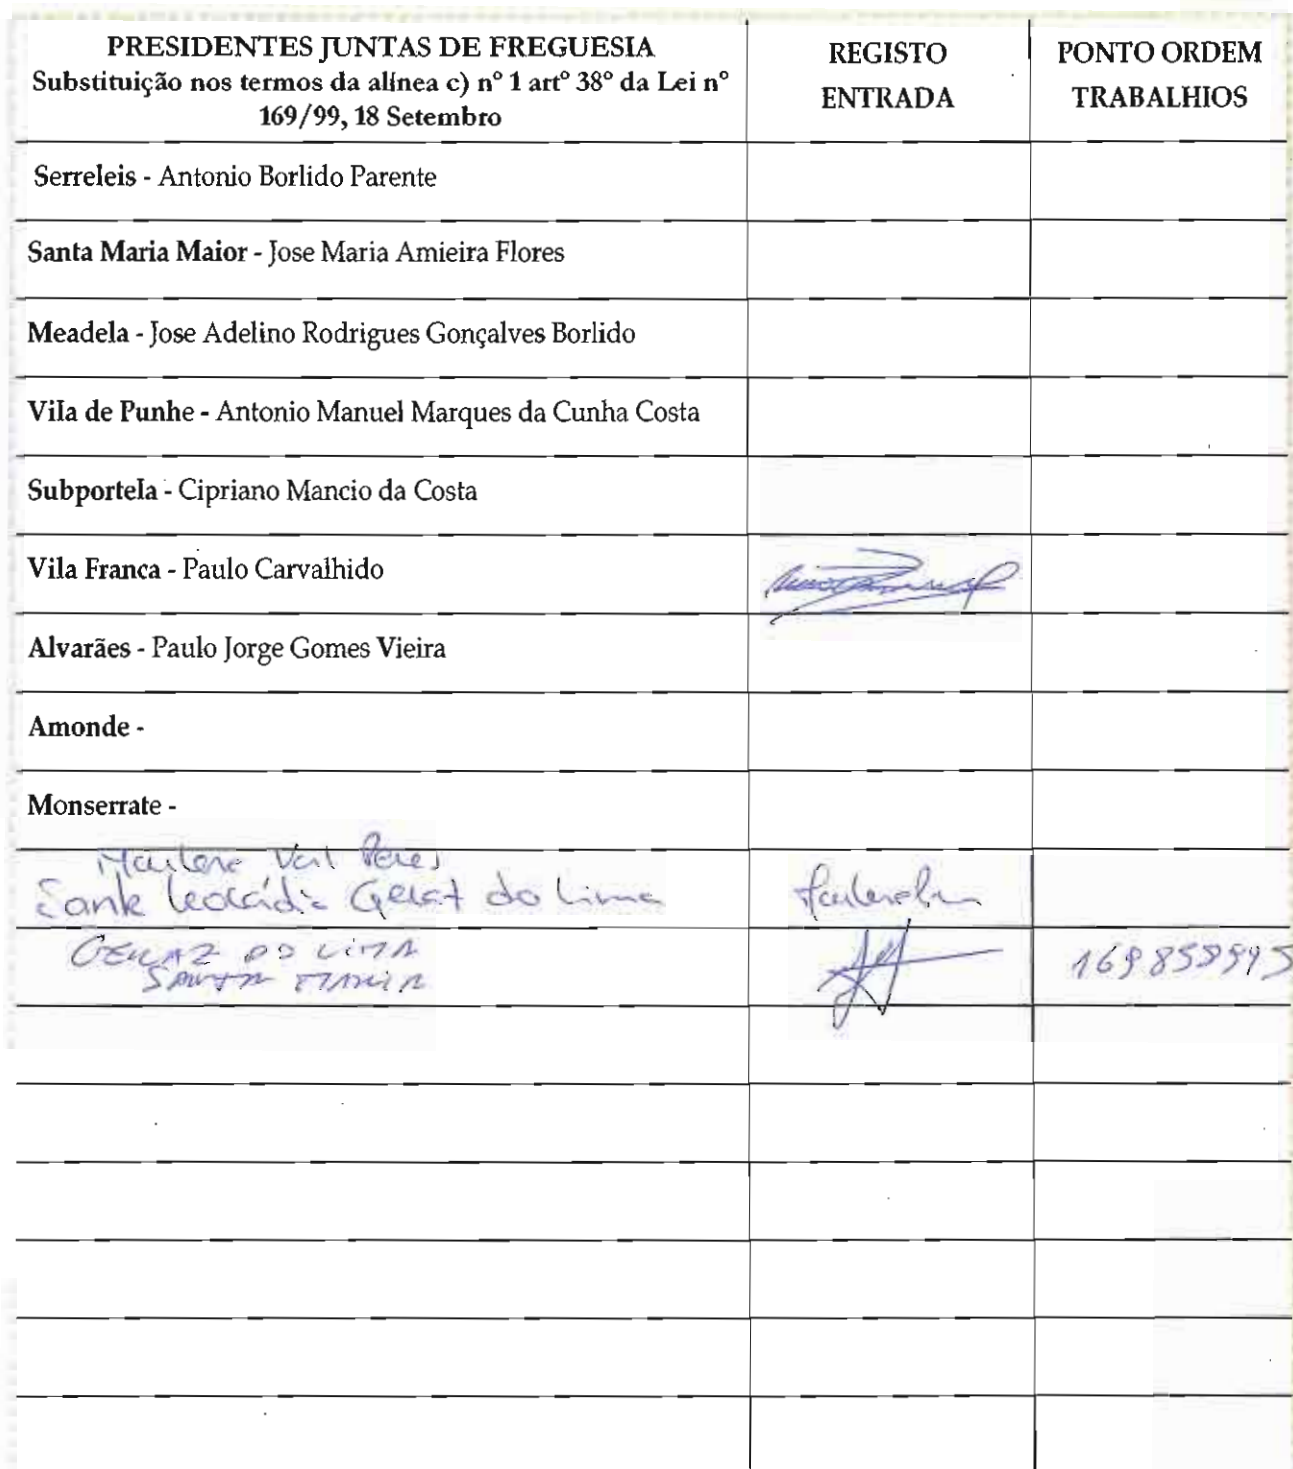 PRESIDENTES JUNTAS DE FREGUESIA
Substituição nos termos da alínea c) nº 1 artº 38º da Lei nº
169/99, 18 Setembro
REGISTO
ENTRADA
PONTO ORDEM
TRABALHIOS
Serreleis - Antonio Borlido Parente
Santa Maria Maior - Jose Maria Amieira Flores
Meadela - Jose Adelino Rodrigues Gonçalves Borlido
Vila de Punhe - Antonio Manuel Marques da Cunha Costa
Subportela - Cipriano Mancio da Costa
Vila Franca - Paulo Carvalhido
Alvarães - Paulo Jorge Gomes Vieira
Amonde -
Monserrate -
Marlene
Leocádia Geraz do Lima
GERAZ DO LIMA
SANTA MARIA